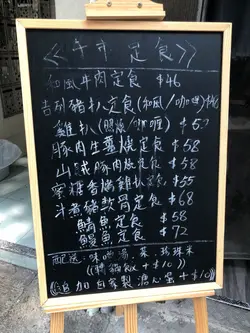 《午市定食》
和風牛肉定食 $46
吉列豬扒定食(和風/咖喱) $46
雞扒(照燒/咖喱) $5
豚肉生薑燒定食 $58
山賊豚肉燒定食 $58
蜜糖香燒雞扒定食 $55
斗煮豬軟骨定食 $68
鯖魚定食 $58
鰻魚定食 $72
配送:味噌湯、菜、珍珠米
+$10
加自家製溫泉蛋+$10